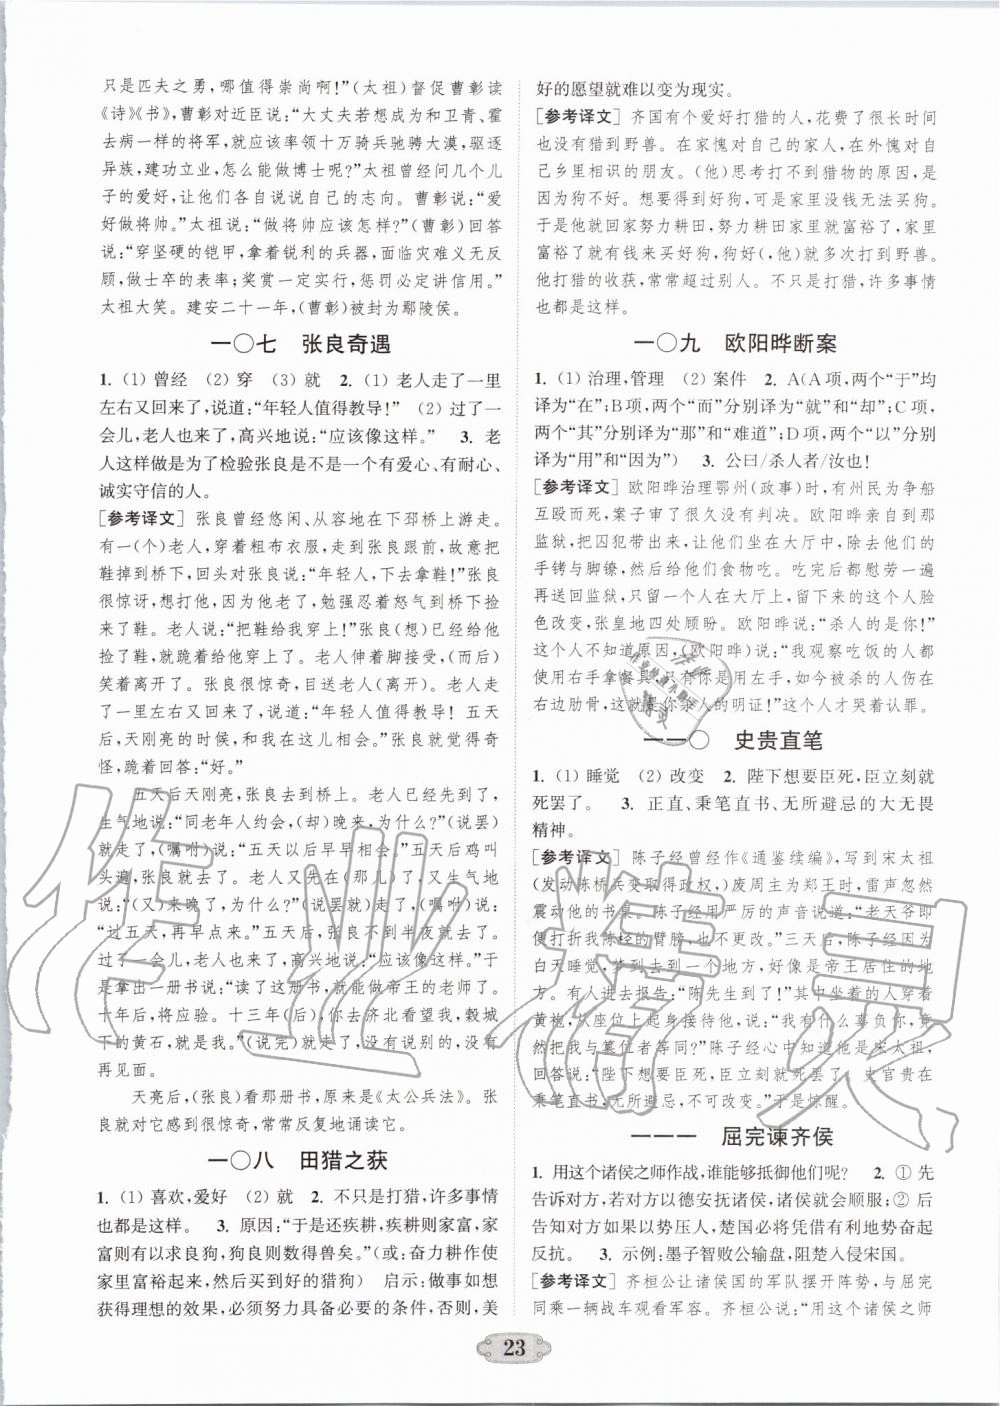 只是匹夫之勇,哪值得崇尚啊!”(太祖)督促曹彰读
《诗》《书》,曹彰对近臣说:“大丈夫若想成为和卫青、霍
去病一样的将军,就应该率领十万骑兵驰骋大漠,驱逐
异族,建功立业,怎么能做博士呢?”太祖曾经问几个儿
子的爱好,让他们各自说说自己的志向。曹彰说:“爱
好做将帅。”太祖说:“做将帅应该怎样?”(曹彰)回答
说:“穿坚硬的铠甲,拿着锐利的兵器,面临灾难义无反
顾,做士卒的表率;奖赏一定实行,惩罚必定讲信用。”
太祖大笑。建安二十一年,(曹彰)被封为鄢陵侯。
一〇七 张良奇遇
1. (1) 曾经 (2) 穿 (3) 就 2. (1) 老人走了一里
左右又回来了,说道:“年轻人值得教导!” (2) 过了一
会儿,老人也来了,高兴地说:“应该像这样。” 3. 老
人这样做是为了检验张良是不是一个有爱心、有耐心、
诚实守信的人。
[参考译文] 张良曾经悠闲、从容地在下邳桥上游走。
有一(个)老人,穿着粗布衣服,走到张良跟前,故意把
鞋掉到桥下,回头对张良说:“年轻人,下去拿鞋!”张良
很惊讶,想打他,(但)因为他老了,勉强忍着怒气到桥下捡
来了鞋。老人说:“把鞋给我穿上!”张良(想)已经给他
捡来了鞋,就跪着给他穿上。老人伸着脚接受,(而后)
笑着离开。张良很惊奇,目送老人(离开)。老人走
了一里左右又回来了,说道:“年轻人值得教导! 五天
后,天刚亮的时候,和我在这儿相会。”张良就觉得奇
怪,跪着回答:“好。”
五天后天刚亮,张良就去到桥上。老人已经先到了,
生气地说:“同老年人约会,(却)晚来,为什么?”(说罢)
就走了,(嘱咐)说:“五天以后早早相会。”五天后鸡叫
头遍,张良就去了。老人又先(在那儿)了,又生气地
说:“(又)来晚了,为什么?”(说罢)就走了,(嘱咐)说:
“过五天,再早点来。”五天后,张良不到半夜就去了。
过了一会儿,老人也来了,高兴地说:“应该像这样。”于
是拿出一册书说:“读了这册书,就能做帝王的老师了。
十年后,将应验。十三年(后),你来济北看望我,榖城
下的黄石,就是我。”(说完)就走了,没有说别的,没有
再见面。
天亮后,(张良)看那册书,原来是《太公兵法》。张
良就对它感到很惊奇,常常反复地诵读它。
一〇八 田猎之获
1. (1) 喜欢,爱好 (2) 就 2. 不只是打猎,许多事情
也都是这样。 3. 原因:“于是还疾耕,疾耕则家富,家
富则有以求良狗,狗良则数得兽矣。”(或:奋力耕作使
家里富裕起来,然后买到好的猎狗) 启示:做事如想
获得理想的效果,必须努力具备必要的条件,否则,美
好的愿望就难以变为现实。
[参考译文] 齐国有个爱好打猎的人,花费了很长时间
也没有猎到野兽。在家愧对自己的家人,在外愧对自
己乡里相识的朋友。(他)思考打不到猎物的原因,是
因为狗不好。想要得到好狗,可是家里没钱无法买狗。
于是他就回家努力耕田,努力耕田家里就富裕了,家里
富裕了就有钱来买好狗,狗好(,他)就多次打到野兽。
他打猎的收获,常常超过别人。不只是打猎,许多事情
也都是这样。
一〇九 欧阳晔断案
1. (1) 治理,管理 (2) 案件 2. A(A项,两个“于”均
译为“在”;B项,两个“而”分别译为“就”和“却”;C项,
两个“其”分别译为“那”和“难道”;D项,两个“以”分别
译为“用”和“因为”) 3. 公曰/杀人者/汝也!
[参考译文] 欧阳晔治理鄂州(政事)时,有州民为争船
互殴而死,案子审了很久没有判决。欧阳晔亲自到那
监狱,把囚犯带出来,让他们坐在大厅中,除去他们的
手铐与脚镣,然后给他们食物吃。吃完后都慰劳一遍
再送回监狱,只留一个人在大厅上,留下的这个人脸
色改变,张皇地四处顾盼。欧阳晔说:“杀人的是你!”
这个人不知道原因,(欧阳晔)说:“我观察吃饭的人都
用右手拿餐具,只有你是用左手,如今被杀的人伤在
右边肋骨,这就是你杀人的明证!”这个人才哭着认罪。
一一〇 史贵直笔
1. (1) 睡觉 (2) 改变 2. 陛下想要臣死,臣立刻就
死罢了。 3. 正直、秉笔直书、无所避忌的大无畏
精神。
[参考译文] 陈子经曾经作《通鉴续编》,写到宋太祖
(发动陈桥兵变取得政权,)废周主为郑王时,雷声忽然
震动他的书桌。陈子经用严厉的声音说道:“老天爷即
便打折我陈经的臂膀,也不更改。”三天后,陈子经因为
白天睡觉,梦到到一个地方,好像是帝王居住的地方。
有人进去报告:“陈先生到了!”其中坐着的人穿着
黄袍,从座位上起身接待他,说:“我有什么辜负你,竟
然把我与篡位者等同?”陈子经心中知道他是宋太祖,
回答说:“陛下想要臣死,臣立刻就死罢了。史官贵在
秉笔直书,无所避忌,不可改变。”于是惊醒。
一一一 屈完谏齐侯
1. 用这个诸侯之师作战,谁能够抵御他们呢? 2. ① 先
告诉对方,若对方以德安抚诸侯,诸侯就会顺服;② 后
告知对方如果以势压人,楚国必将凭借有利地势奋起
反抗。 3. 示例:墨子智败公输盘,阻楚人侵宋国。
[参考译文] 齐桓公让诸侯国的军队摆开阵势,与屈完
同乘一辆战车观看军容。齐桓公说:“用这个诸侯之师
23
作业精灵